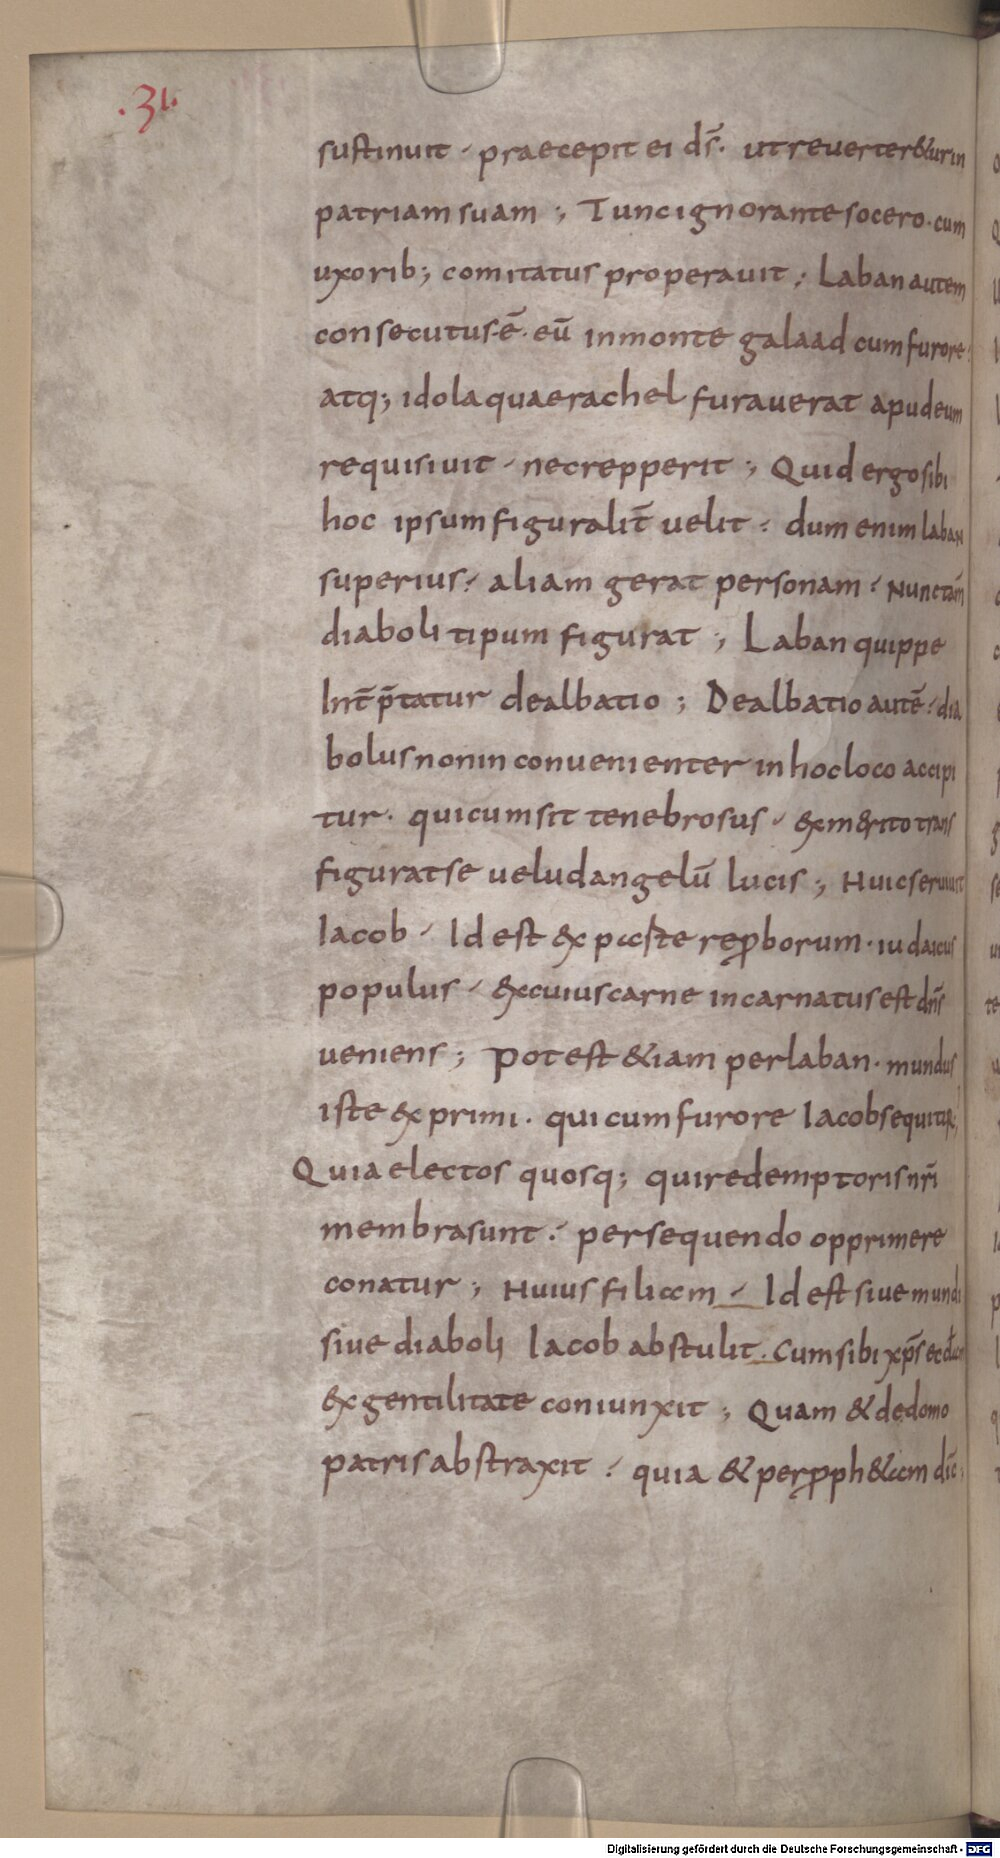 .31.
sustinuit · praecepit ei d̄s · ut reuerter&ur in
patriam suam ; Tunc ignorante socero · cum
uxorib; comitatus properauit ; Laban autem
consecutus · ē · eū in monte galaad cum furore ·
atq; idola quae rachel furauerat apud eum
requisiuit · nec repperit ; Quid ergo sibi
hoc ipsum figuralit̄ uelit · dum enim laban
superius · aliam gerat personam · Nunc tam̄
diaboli tipum figurat ; Laban quippe
Int̄p̄tatur dealbatio ; Dealbatio autē · dia
bolus non inconuenienter in hoc loco accipi
tur · qui cum sit tenebrosus · ex m&rito trans
figurat se uelud angelū lucis ; Huic seruiuit
Iacob · Id est ex parte reꝓborum · iudaicus
populus · ex cuius carne incarnatus est dn̄s
ueniens ; Potest &iam per laban · mundus
iste exprimi · qui cum furore Iacob sequitur;
Quia electos quosq; qui redemptoris nr̄i
membra sunt · persequendo opprimere
conatur ; Huius filiam · Id est siue mundi
siue diaboli Iacob abstulit · Cum sibi xp̄s eccl̄am
ex gentilitate coniunxit ; Quam & de domo
patris abstraxit · quia & per ꝓph&am dic̄ ;
Digitalisierung gefördert durch die Deutsche Forschungsgemeinschaft · DFG